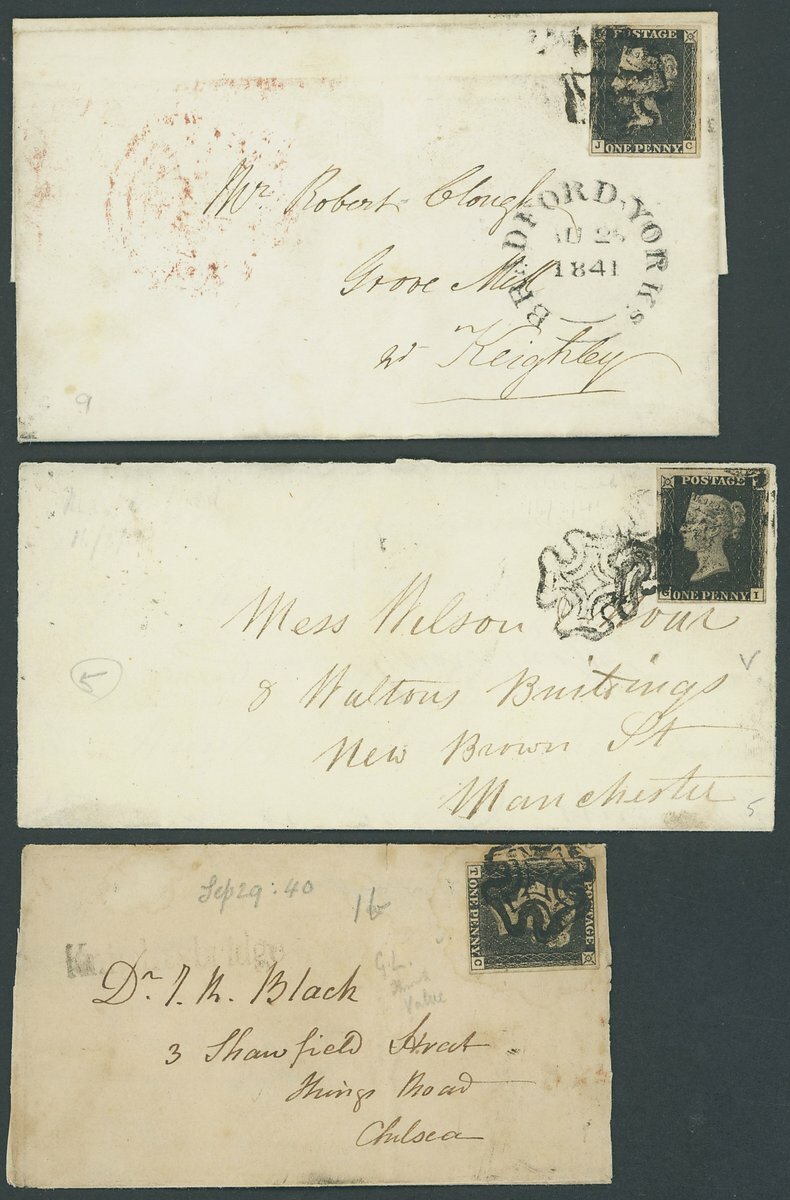 POSTAGE
J ONE PENNY C
BRADFORD-YORKS
AU 2
1841
Mr Robert Clough
Grove Mill
Nr Keighley
9
POSTAGE
G ONE PENNY I
Mess Wilson
8 Waltons Buildings
New Brown St
Manchester
5
5
POSTAGE
T ONE PENNY C
Sep 29: 40
16
G.L.
Value
Knightsbridge
Dr. J. R. Black
3 Shawfield Street
Kings Road
Chelsea